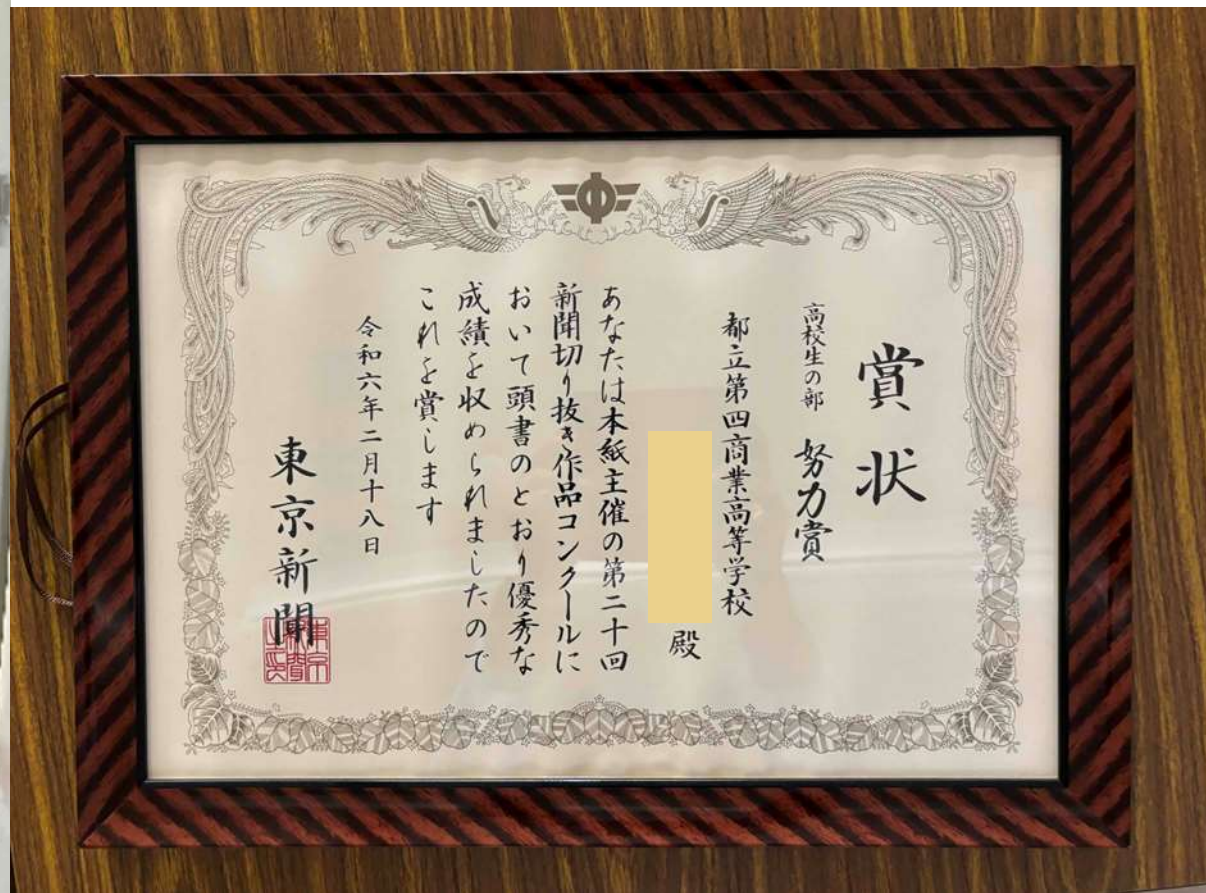 賞状
高校生の部 努力賞
都立第四商業高等学校
殿
あなたは本紙主催の第二十回
新聞切り抜き作品コンクールに
おいて頭書のとおり優秀な
成績を収められましたので
これを賞します
令和六年二月十八日
東京新聞